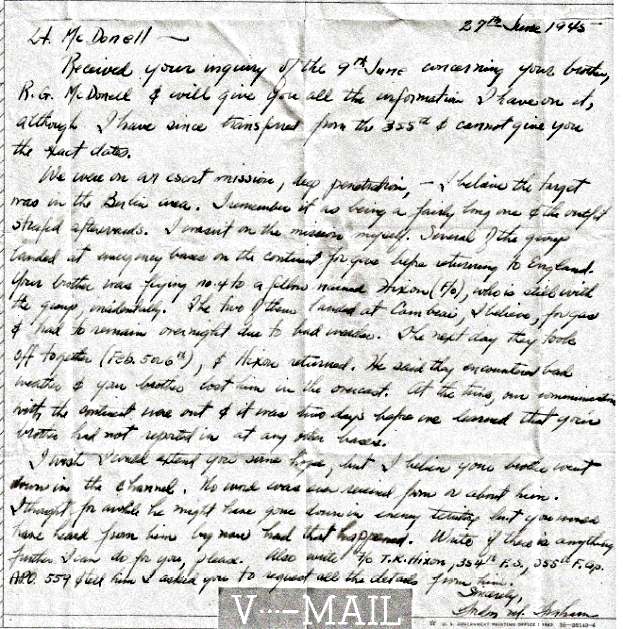 27th June 1945
Lt. McDonell —
Received your inquiry of the 9th June concerning your brother,
R. G. McDonell & will give you all the information I have on it,
although I have since transferred from the 355th & cannot give you
the exact dates.
We were on an escort mission, deep penetration, — I believe the target
was in the Berlin area. I remember it as being a fairly long one & the outfit
strafed afterwards. I wasn't on the mission myself. Several of the group
landed at emergency bases on the continent for gas before returning to England.
Your brother was flying no. 4 to a fellow named Hixon (F/O), who is still with
the group, incidentally. The two of them landed at Cambrai, I believe, for gas
& had to remain overnight due to bad weather. The next day they took
off together (Feb. 5 or 6th), & Hixon returned. He said they encountered bad
weather & your brother lost him in the overcast. At the time, our communications
with the continent were out & it was two days before we learned that your
brother had not reported in at any other bases.
I wish I could extend you some hope, but I believe your brother went
down in the Channel. No word was ever received from or about him.
I thought for awhile he might have gone down in enemy territory but you would
have heard from him by now had that happened. Write if there is anything
further I can do for you, please. Also write F/O T. K. Hixon, 354th F.S., 355th F. Gp.
APO 559 & tell him I asked you to request all the details from him.
Sincerely,
M. Graham
V···-MAIL
U. S. GOVERNMENT PRINTING OFFICE : 1943 16-28143-4